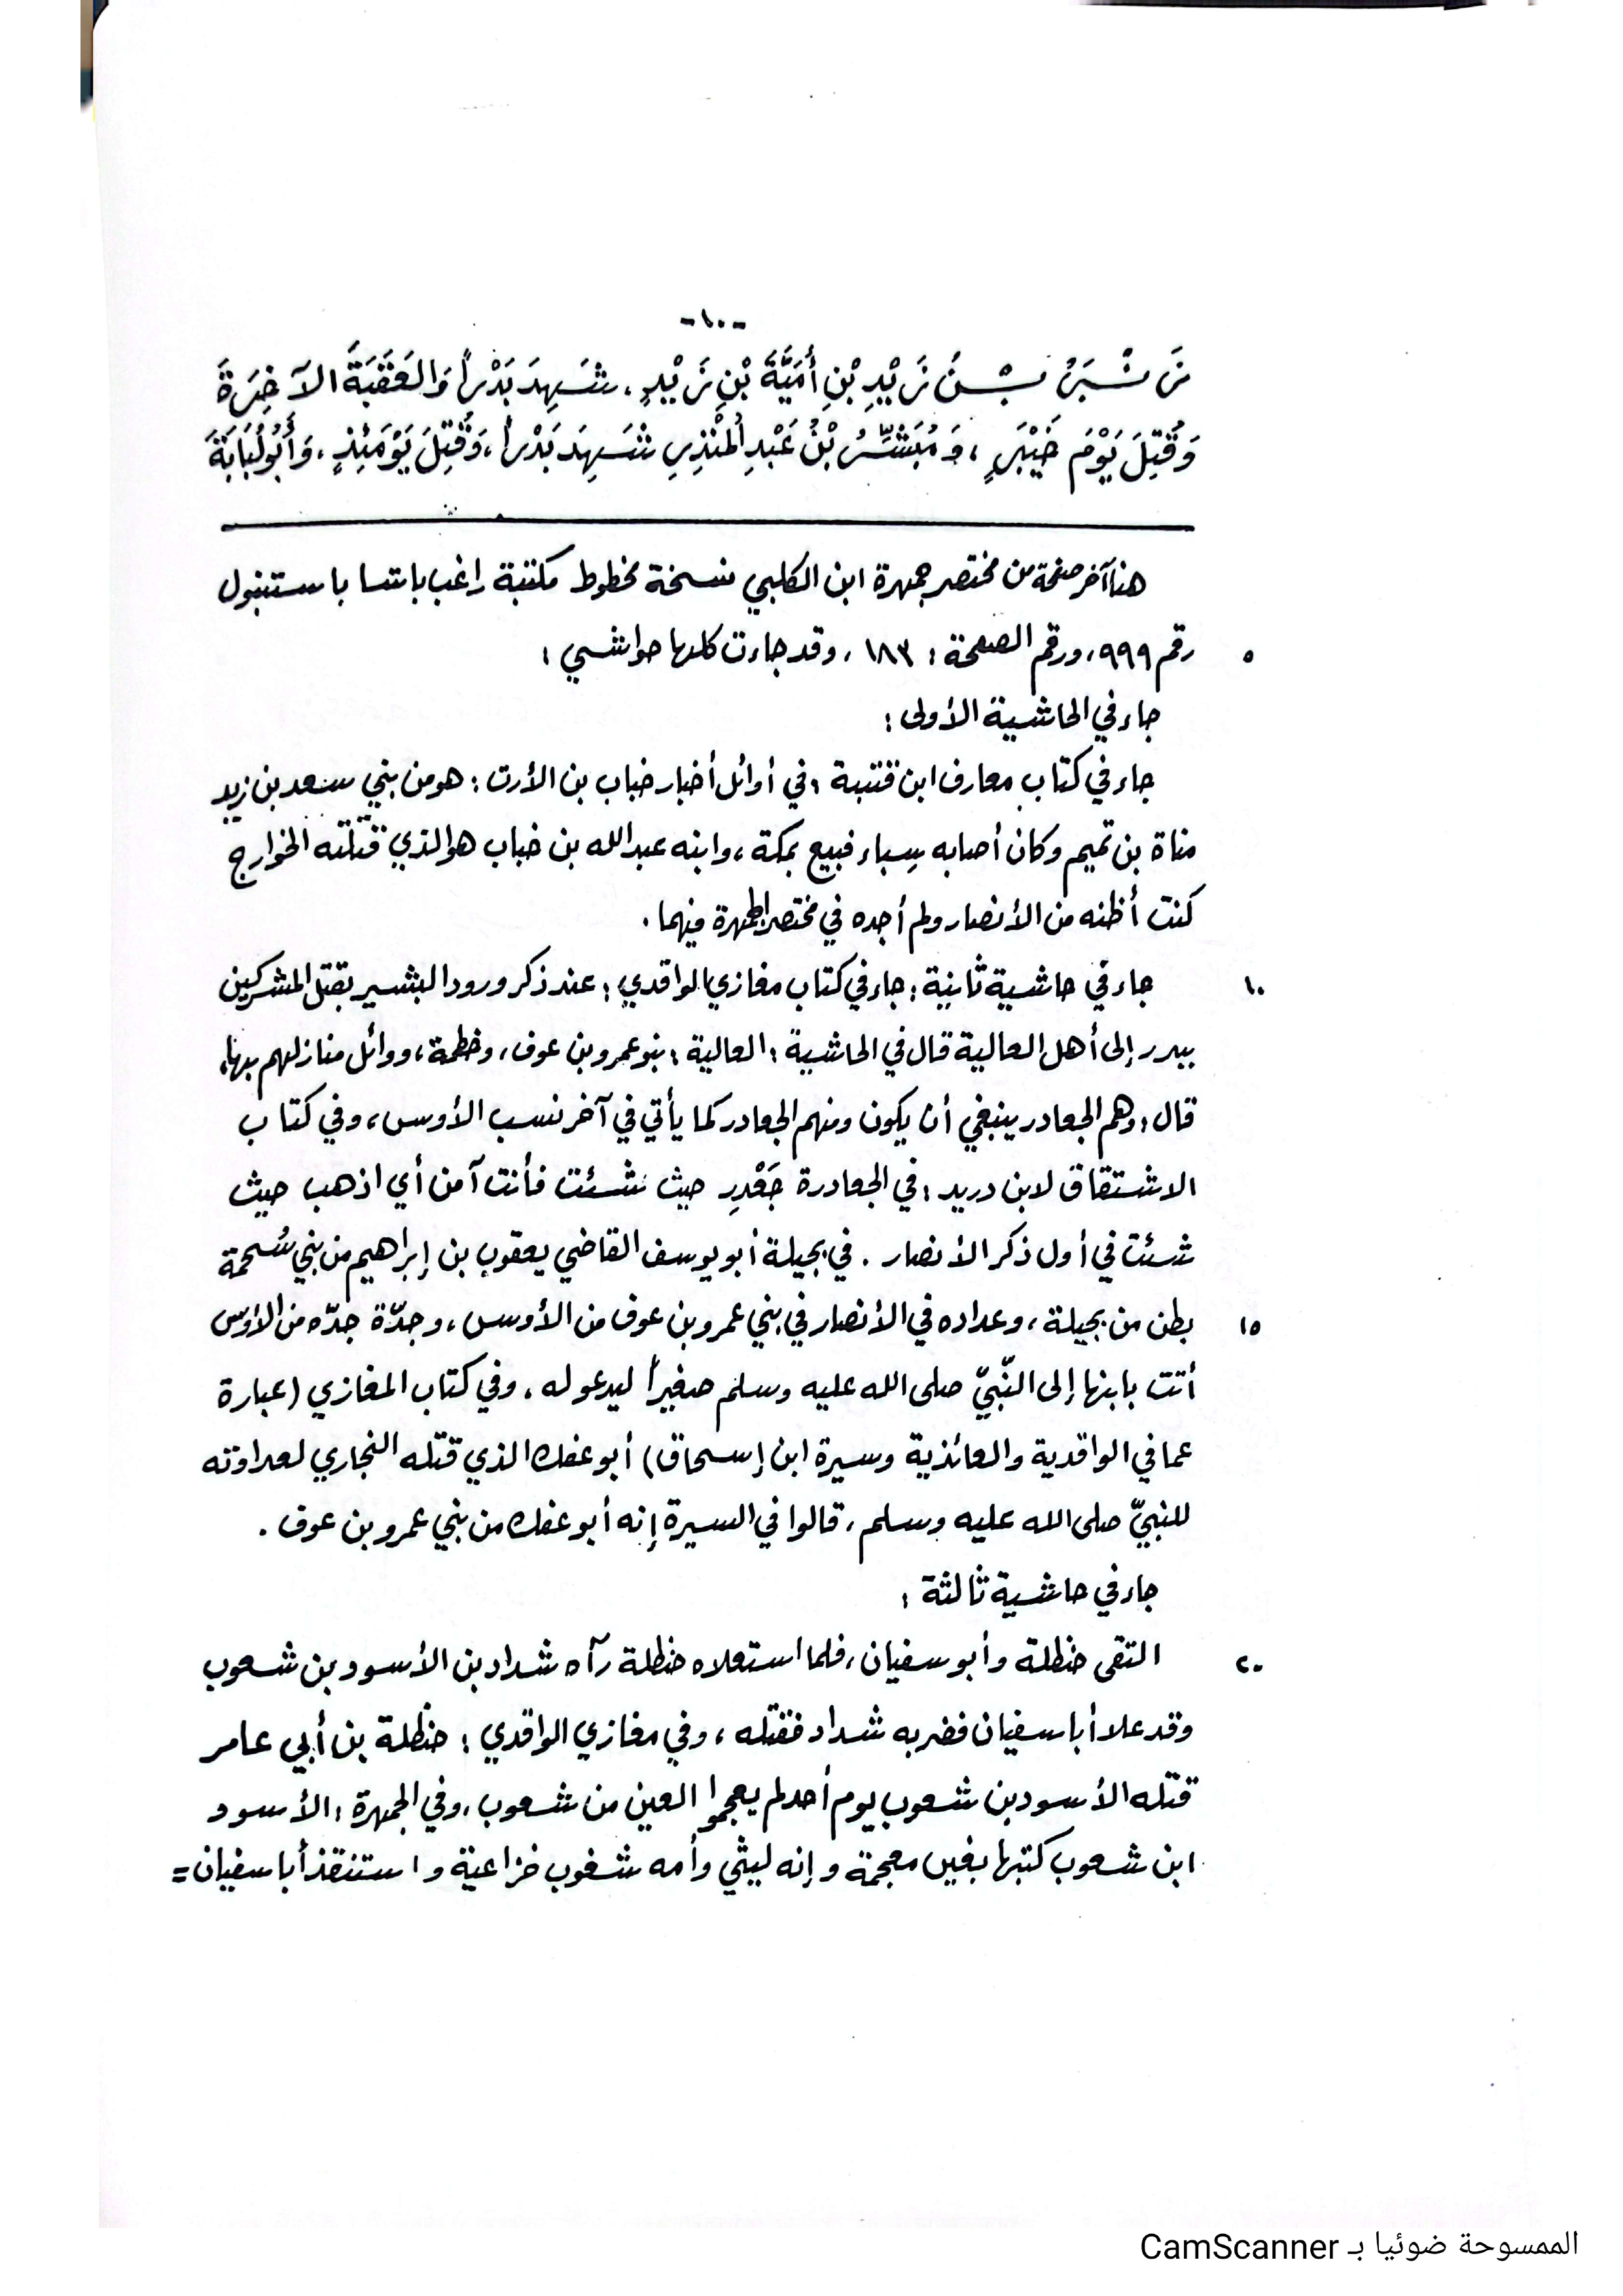 -١٠-
زَنْبَرُ بْنُ زَيْدِ بْنِ أُمَيَّةَ بْنِ زَيْدٍ، شَهِدَ بَدْراً وَالعَقَبَةَ الآخِرَةَ
وَقُتِلَ يَوْمَ خَيْبَرٍ، وَمُبَشِّرُ بْنُ عَبْدِ الْمُنْذِرِ شَهِدَ بَدْراً، وَقُتِلَ يَوْمَئِذٍ، وَأَبُو لُبَابَةَ
هنا آخر صفحة من مختصر جمهرة ابن الكلبي نسخة مخطوط مكتبة راغب باشا باستنبول
٥ رقم ٩٩٩، ورقم الصفحة: ١٨٣، وقد جاءت كلها حواشي:
جاء في الحاشية الأولى:
جاء في كتاب معارف ابن قتيبة: في أوائل أخبار خباب بن الأرت: هو من بني سعد بن زيد
مناة بن تميم وكان أصابه سِباء فبيع بمكة، وابنه عبد الله بن خباب هو الذي قتلته الخوارج
كنت أظنه من الأنصار ولم أجده في مختصر الجمهرة فيهما.
١٠ جاء في حاشية ثانية: جاء في كتاب مغازي الواقدي: عند ذكر ورود البشير بقتل المشركين
ببدر إلى أهل العالية قال في الحاشية: العالية: بنو عمرو بن عوف، وخطمة، ووائل منازلهم بها،
قال: وهم الجعادر ينبغي أن يكون ومنهم الجعادر كما يأتي في آخر نسب الأوس، وفي كتاب
الاشتقاق لابن دريد: في الجعادرة جَعْدِر حيث شئت فأنت آمن أي اذهب حيث
شئت في أول ذكر الأنصار. في بجيلة أبو يوسف القاضي يعقوب بن إبراهيم من بني سُحمة
١٥ بطن من بجيلة، وعداده في الأنصار في بني عمرو بن عوف من الأوس، وجدّة جدّه من الأوس
أتت بابنها إلى النّبيّ صلى الله عليه وسلم صغيراً ليدعو له، وفي كتاب المغازي (عبارة
عما في الواقدية والعائذية وسيرة ابن إسحاق) أبو عفك الذي قتله النجاري لعداوته
للنبيّ صلى الله عليه وسلم، قالوا في السيرة إنه أبو عفك من بني عمرو بن عوف.
جاء في حاشية ثالثة:
٢٠ التقى حنظلة وأبو سفيان، فلما استعلاه حنظلة رآه شداد بن الأسود بن شعوب
وقد علا أبا سفيان فضربه شداد فقتله، وفي مغازي الواقدي: حنظلة بن أبي عامر
قتله الأسود بن شعوب يوم أحد لم يعجموا العين من شعوب، وفي الجمهرة: الأسود
ابن شعوب كتبها بغين معجمة وإنه ليثي وأمه شغوب خزاعية واستنقذ أبا سفيان =
الممسوحة ضوئيا بـ CamScanner